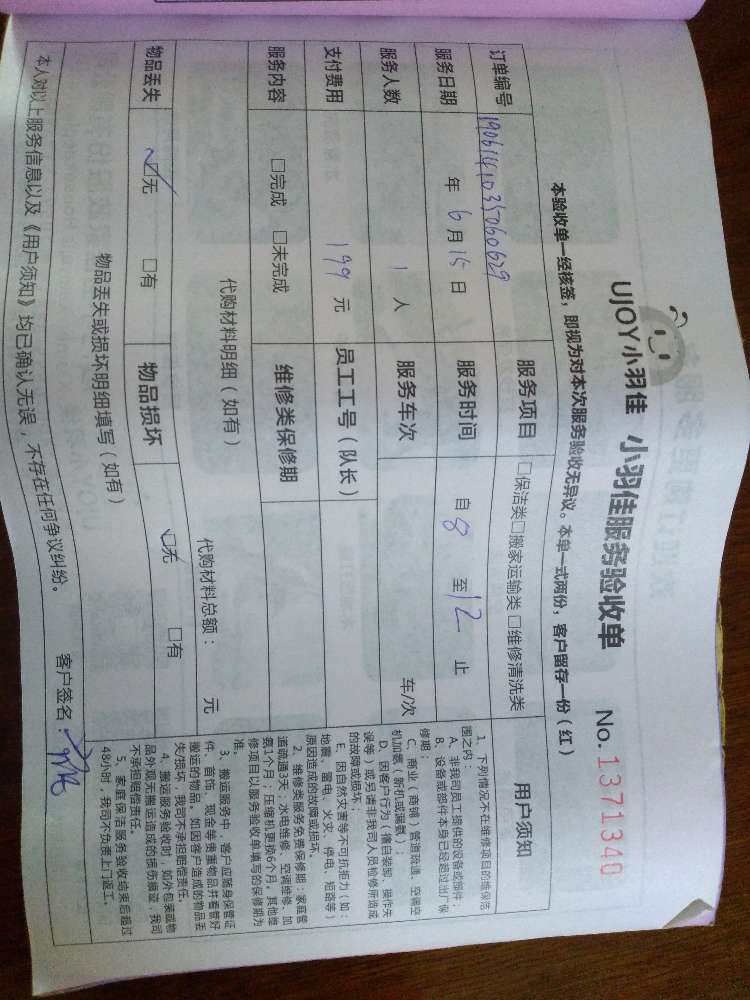 UJOY小羽佳 小羽佳服务验收单 No. 1371340
本验收单一经核签，即视为对本次服务验收无异议。本单一式两份，客户留存一份（红）
订单编号 1906141035060629 服务项目 □保洁类□搬家运输类 □维修清洗类
服务日期 年 6 月 15 日 服务时间 自 8 至 12 止
服务人数 1 人 服务车次 车/次
支付费用 199 元 员工工号（队长）
服务内容 □完成 □未完成 维修类保修期
代购材料明细（如有） 代购材料总额： 元
物品丢失 ☑无 □有 物品损坏 ☑无 □有
物品丢失或损坏明细填写（如有）
本人对以上服务信息以及《用户须知》均已确认无误，不存在任何争议纠纷。 客户签名：
用户须知
1、下列情况不在维修项目的维保范
围之内：
A、非我司员工提供的设备或部件；
B、设备或部件本身已经超过出厂保
修期；
C、商业（商铺）管道疏通、空调空
机加氨（新机或漏氨）；
D、因客户行为（擅自装卸、操作失
误等）或另请非我司人员检修所造成
的故障或损坏；
E、因自然灾害等不可抗拒力（如：
地震、雷电、火灾、停电、短路等）
原因造成的故障或损坏。
2、维修类服务免费保修期：家庭管
道疏通3天；水电维修、空调维修、加
氨1个月；压缩机更换6个月。其他维
修项目以服务验收单填写的保修期为
准。
3、搬运服务中，客户应随身保管证
件、首饰、现金等贵重物品并看管好
搬运的物品。如因客户造成的物品丢
失/损坏，我司不承担赔偿责任。
4、搬运服务验收时，如外包装或物
品外观无搬运造成的损伤痕迹，我司
不承担赔偿责任。
5、家庭保洁服务验收结束后超过
48小时，我司不负责上门返工。